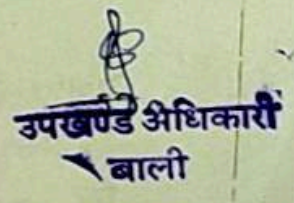 उपखण्ड अधिकारी
बाली